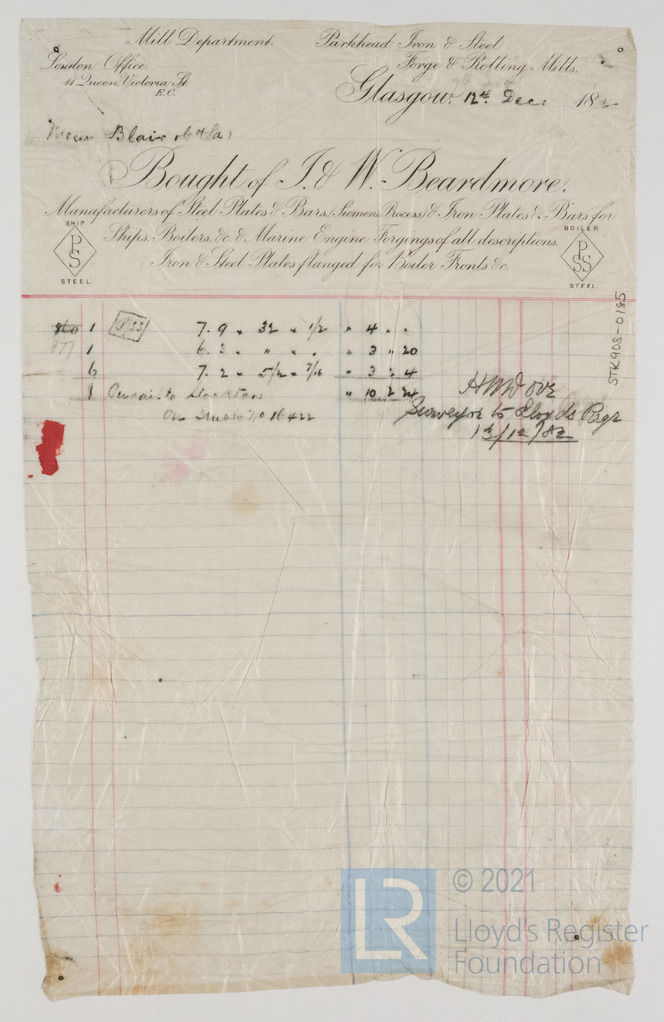 Mill Department. Parkhead Iron & Steel
London Office. Forge & Rolling Mills.
41 Queen Victoria St
E.C.
Glasgow, 12th Dec 188
Blair & Co
Bought of I. & W. Beardmore.
Manufacturers of Steel Plates & Bars, (Siemens Process) & Iron Plates & Bars for
Ships, Boilers, &c & Marine Engine Forgings of all descriptions.
Iron & Steel Plates flanged for Boiler Fronts &c.
SHIP
PSS
STEEL.
BOILER
PSS
STEEL.
1 PSS 7. 9 × 32 × 1/2 " 4 . .
877 1 6. 3 " " " 3 " 20
6 7. 2 × 5/2 × 7/16 " 3 2 4
1 to Stockton " 10 2 24
On 16422
Surveyor to Lloyds Regr
13/12/82
STK908-0185
LR
© 2021
Lloyd's Register
Foundation